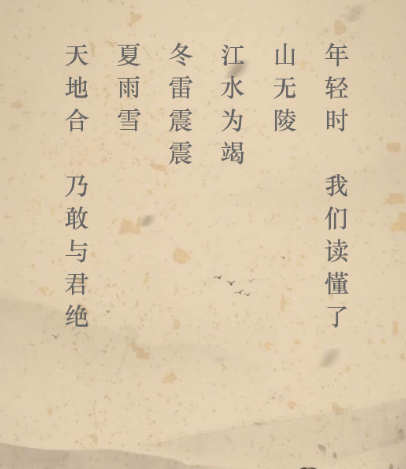 年轻时 我们读懂了
山无陵
江水为竭
冬雷震震
夏雨雪
天地合 乃敢与君绝